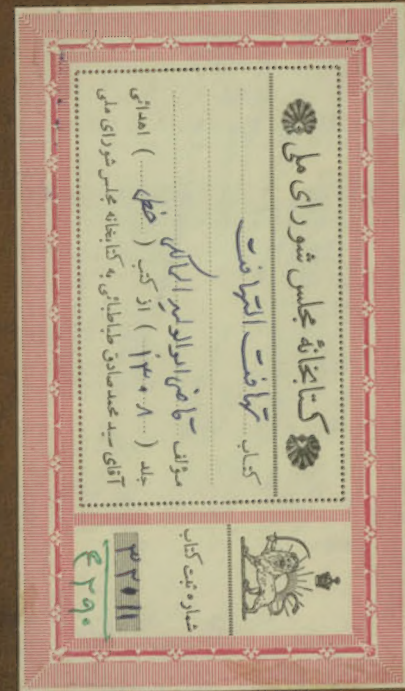 کتابخانهٔ مجلس شورای ملی
کتاب تهافت التهافت
مؤلف قاضی ابوالولید المالکی
جلد ( ۱۳۰۸ ) از کتب ( خطی ) اهدائی
آقای سید محمد صادق طباطبائی به کتابخانه مجلس شورای ملی
شماره ثبت کتاب
۳۲۰۱۱
۲۹۰